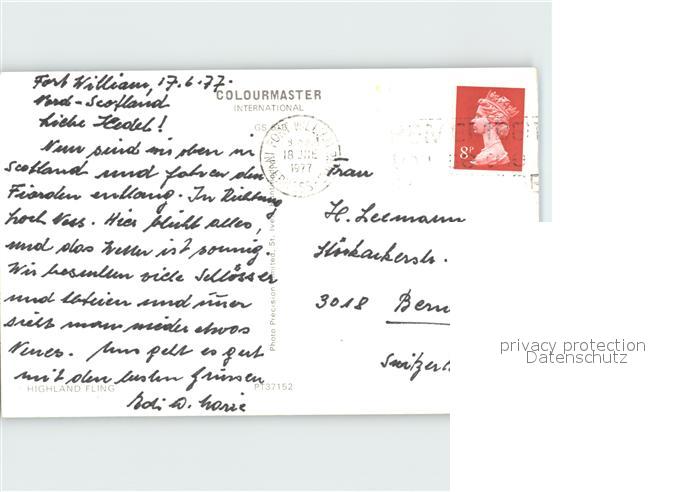 Fort William, 17.6.77.
Nord-Scotland
COLOURMASTER
INTERNATIONAL
Liebe Hedel!
Nun sind wir oben in
Scotland und fahren den
Fiorden entlang. In Richtung
Loch Ness. Hier blüht alles,
und das Wetter ist sonnig.
Wir besuchen viele Schlösser
und und
sieht man wieder etwas
Neues. Uns geht es gut
mit den besten Grüssen
Edi u.
FORT WILLIAM
18 JNE
1977
8P
Frau
H. Leemann
Stockackerstr.
3018 Bern
Switzerl
Photo Precision Limited, St. Ives
HIGHLAND FLING
PT37152
privacy protection
Datenschutz